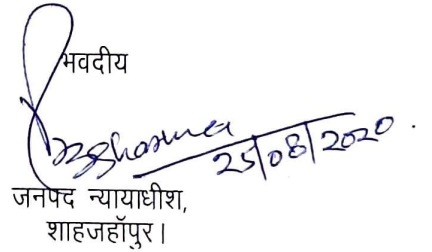 भवदीय
25/08/2020.
जनपद न्यायाधीश,
शाहजहॉपुर।